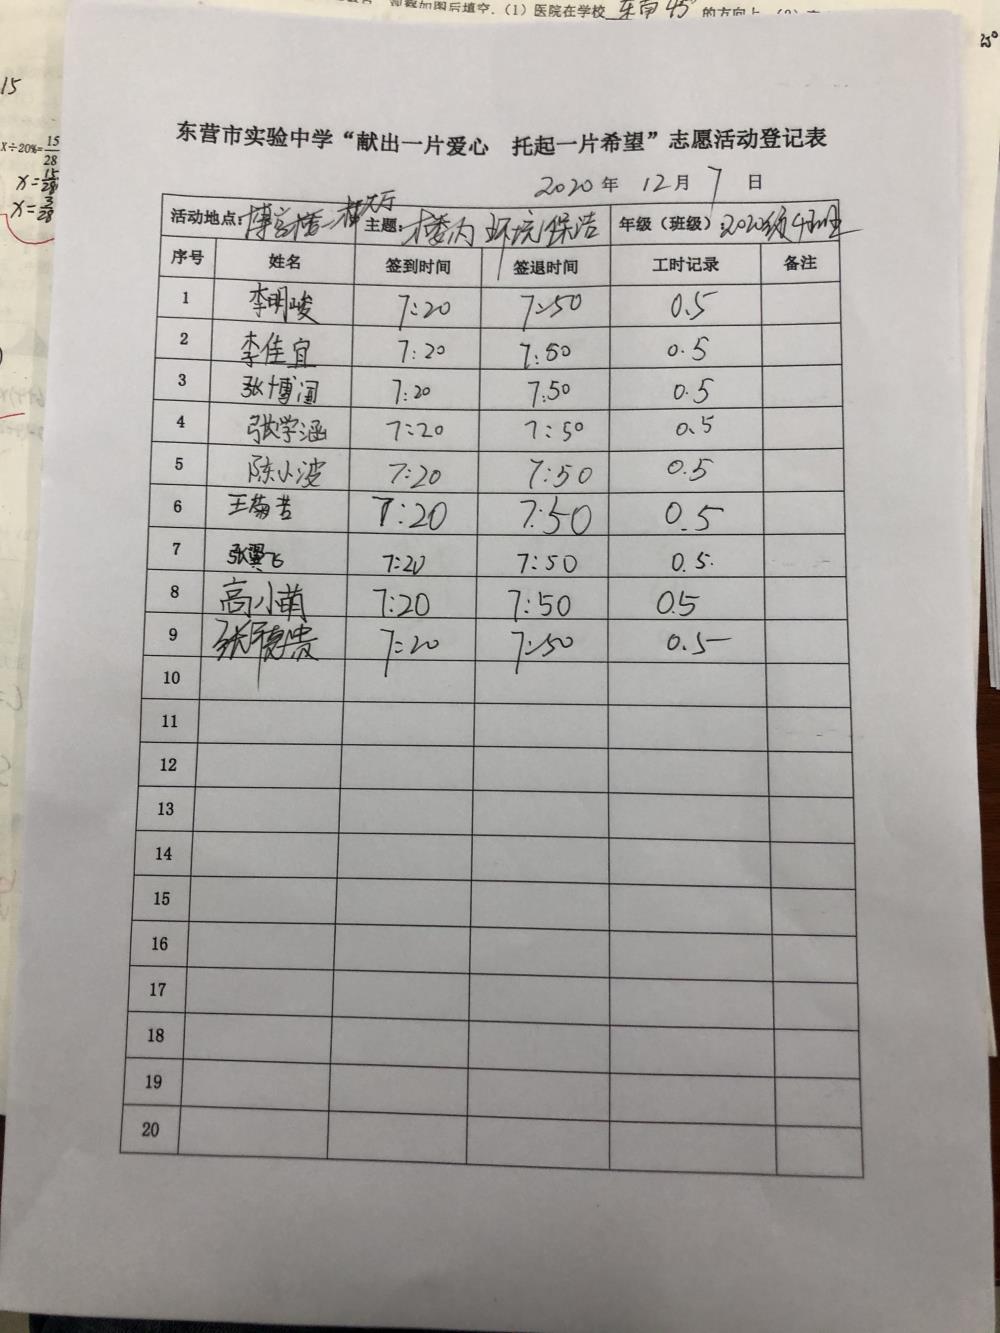 察如图后填空.(1)医院在学校 东南45° 的方向上
25°
15
X÷20%=15/28
x=15/28
x=3/28
东营市实验中学“献出一片爱心 托起一片希望”志愿活动登记表
2020 年 12 月 7 日
活动地点: 楼大厅 主题: 楼内环境保洁 年级(班级): 2020级4班
序号 姓名 签到时间 签退时间 工时记录 备注
1 李明峻 7:20 7:50 0.5
2 李佳宜 7:20 7:50 0.5
3 张博 7:20 7:50 0.5
4 张学涵 7:20 7:50 0.5
5 陈小波 7:20 7:50 0.5
6 王菊 7:20 7:50 0.5
7 张翼飞 7:20 7:50 0.5
8 高小萌 7:20 7:50 0.5
9 张德贵 7:20 7:50 0.5
10
11
12
13
14
15
16
17
18
19
20